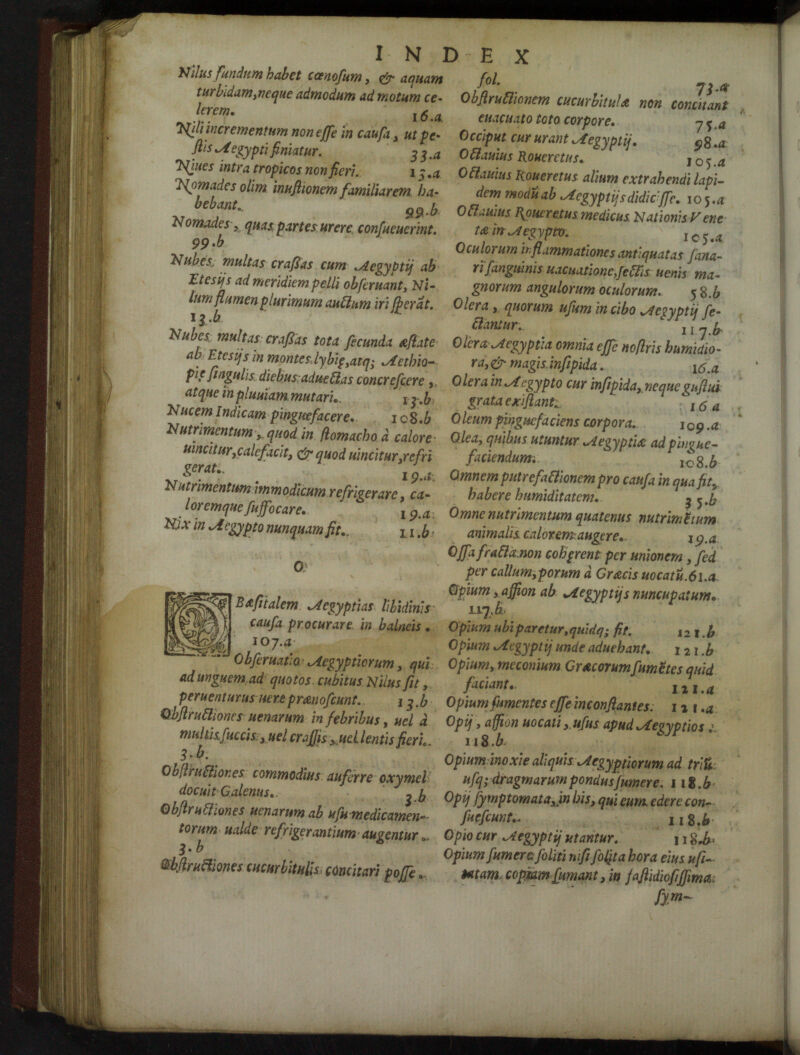 INDEX
Nilus fundum habet cœnosum, & aquam
turbidam, neque admodum ad motum ce-
lerem. 16.a
Nili incrementum non esse in causa, ut pe-
stis Aegypti finiatur. 33.a
Niues intra tropicos non fieri. 13.a
Nomades olim inustionem familiarem ha-
bebant. 99.b
Nomades, quas partes urere consueuerint.
99.b
Nubes, multas crassas cum Aegyptij ab
Etesijs ad meridiem pelli obseruant, Ni-
lum flumen plurimum auctum iri sperāt.
13.b
Nubes, multas crassas tota fecunda æstate
ab Etesijs in montes lybię, atq; Aethio-
pię singulis diebus aduectas concrescere,
atque in pluuiam mutari. 13.b
Nucem Indicam pinguefacere. 108.b
Nutrimentum, quod in stomacho à calore
uincitur, calefacit, & quod uincitur, refri
gerat. 19.a
Nutrimentum immodicum refrigerare, ca-
loremque suffocare. 19.a
Nix in Aegypto nunquam fit. 11.b
O
OBæsitalem Aegyptias libidinis
causa procurare in balneis.
107.a
Obseruatio Aegyptiorum, qui
ad unguem ad quotos cubitus Nilus sit,
peruenturus uere prænoscunt. 13.b
Obstructiones uenarum in febribus, uel à
multis succis, uel crassis, uel lentis fieri.
3.b.
Obstructiones commodius auferre oxymel
docuit Galenus. 3.b
Obstructiones uenarum ab usu medicamen-
torum ualde refrigerantium augentur.
3.b
Obstructiones cucurbitulis concitari posse.
fol. 73.a
Obstructionem cucurbitulæ non concitant
euacuato toto corpore. 75.a
Occiput cur urant Aegyptij. 98.a
Octauius Roueretus. 105.a
Octauius Roueretus alium extrahendi lapi-
dem modū ab Aegyptijs didicisse. 105.a
Octauius Roueretus medicus Nationis Vene
tæ in Aegypto. 105.a
Oculorum inflammationes antiquatas sana-
ri sanguinis uacuatione, sectis uenis ma-
gnorum angulorum oculorum. 58.b
Olera, quorum usum in cibo Aegyptij se-
ctantur. 117.b
Olera Aegyptia omnia esse nostris humidio-
ra, & magis insipida. 16.a
Olera in Aegypto cur insipida, neque gustui
grata existant. 16 a
Oleum pinguefaciens corpora. 109.a
Olea, quibus utuntur Aegyptiæ ad pingue-
faciendum. 108.b
Omnem putrefactionem pro causa in qua fit,
habere humiditatem. 35.b
Omne nutrimentum quatenus nutrimētum
animalis calorem augere. 19.a
Ossa fracta non cohęrent per unionem, sed
per callum, porum à Græcis uocatū. 61.a
Opium, assion ab Aegyptijs nuncupatum.
117.b
Opium ubi paretur, quidq; sit. 121.b
Opium Aegyptij unde aduehant. 121.b
Opium, meconium Græcorum sumētes quid
faciant. 121.a
Opium sumentes esse inconstantes. 121.a
Opij, assion uocati, usus apud Aegyptios.
118.b
Opium inoxie aliquis Aegyptiorum ad triū
usq; dragmarum pondus sumere. 118.b
Opij symptomata, in his, qui eum edere con-
suescunt. 118.b
Opio cur Aegyptij utantur. 118.b
Opium sumere soliti nisi solita hora eius usi-
tatam copiam sumant, in fastidiosissima
sym-